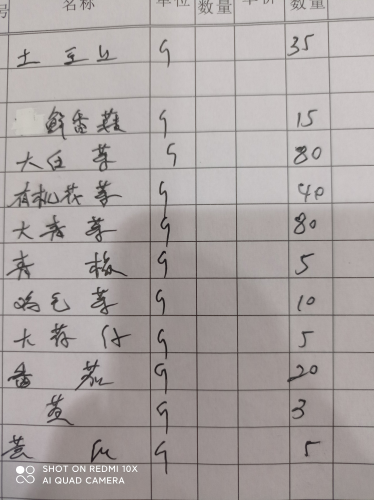 号 名称 单位 数量 单价 数量
土豆 G 35
鲜香菇 G 15
大白菜 G 80
有机花菜 G 40
大青菜 G 80
青椒 G 5
鸡毛菜 G 10
大蒜仔 G 5
番茄 G 20
G 3
G 5
SHOT ON REDMI 10X
AI QUAD CAMERA